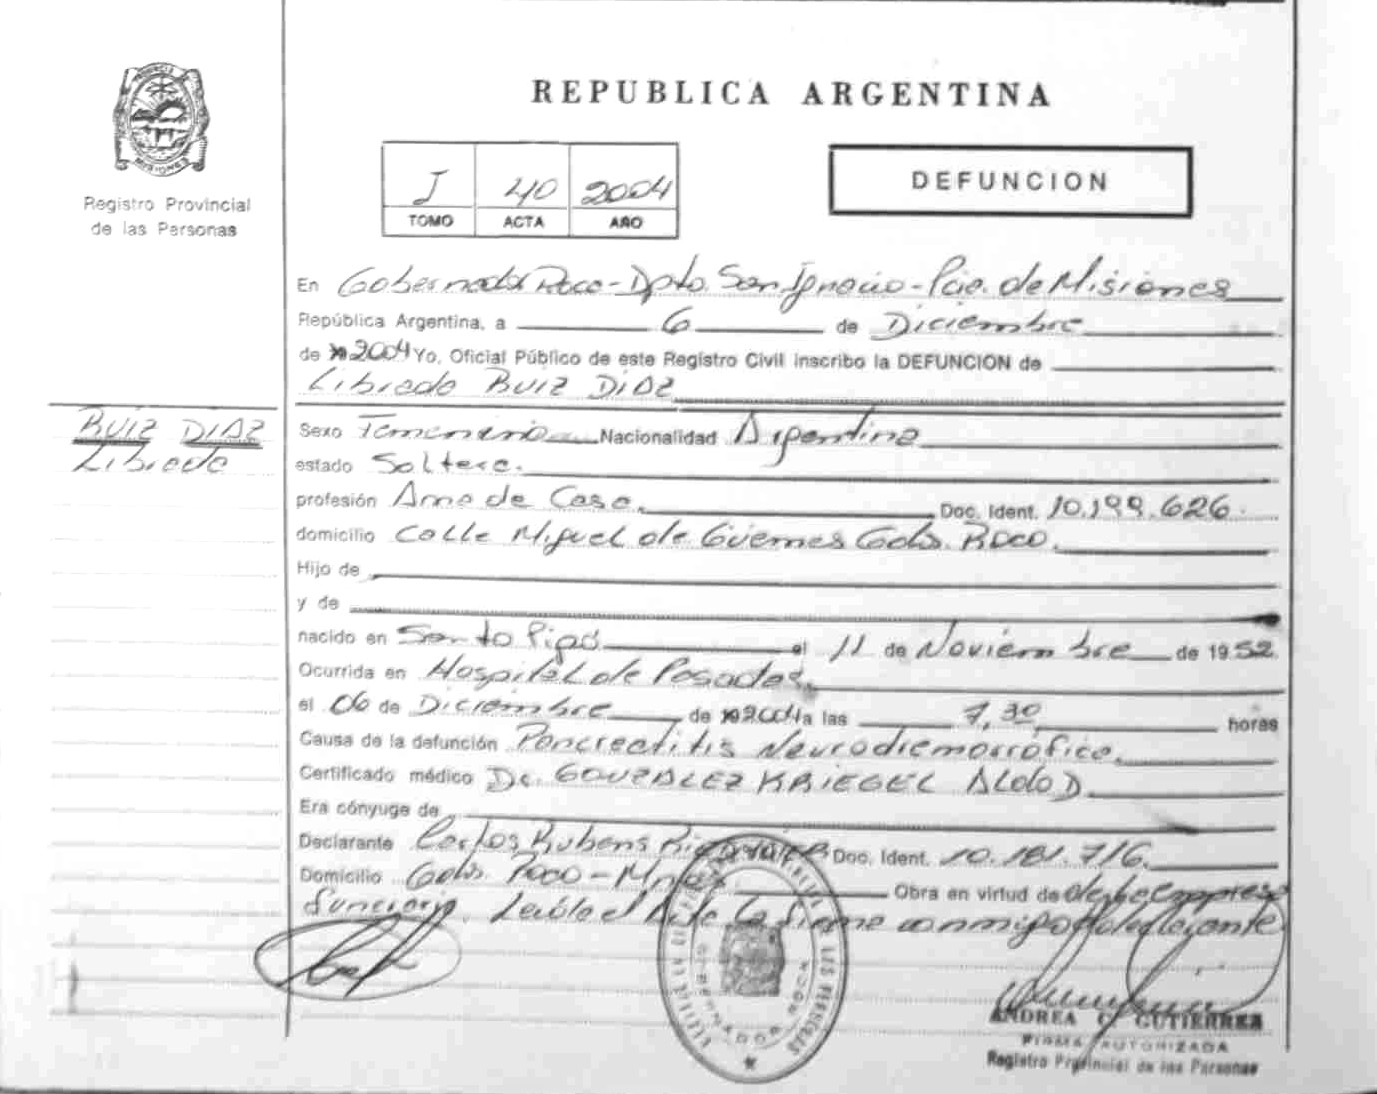 REPUBLICA ARGENTINA
PROVINCIA
MISIONES
Registro Provincial
de las Personas
I 40 2004
TOMO ACTA AÑO
DEFUNCION
En Gobernador Roca - Dpto. San Ignacio - Pcia. de Misiones
República Argentina, a 6 de Diciembre
de 2004 Yo, Oficial Público de este Registro Civil inscribo la DEFUNCION de
Librada RUIZ DIAZ
RUIZ DIAZ
Librada
Sexo Femenino Nacionalidad Argentina
estado Soltera.
profesión Ama de Casa. Doc. Ident. 10.199.626.
domicilio Calle Miguel de Güemes Gdor. Roca.
Hijo de
y de
nacido en Santo Pipó el 11 de Noviembre de 1952.
Ocurrida en Hospital de Posadas.
el 06 de Diciembre de 2004 a las 7,30 horas
Causa de la defunción Pancreatitis
Certificado médico Dr. GONZALEZ KRIEGEL ALDO D.
Era cónyuge de
Declarante Carlos Rubens Doc. Ident. 10.181.716.
Domicilio Gdor. Roca - Mnes Obra en virtud de
Leída el Acta la firma conmigo
GOBERNADOR ROCA
ANDREA C. GUTIERREZ
FIRMA AUTORIZADA
Registro Provincial de las Personas